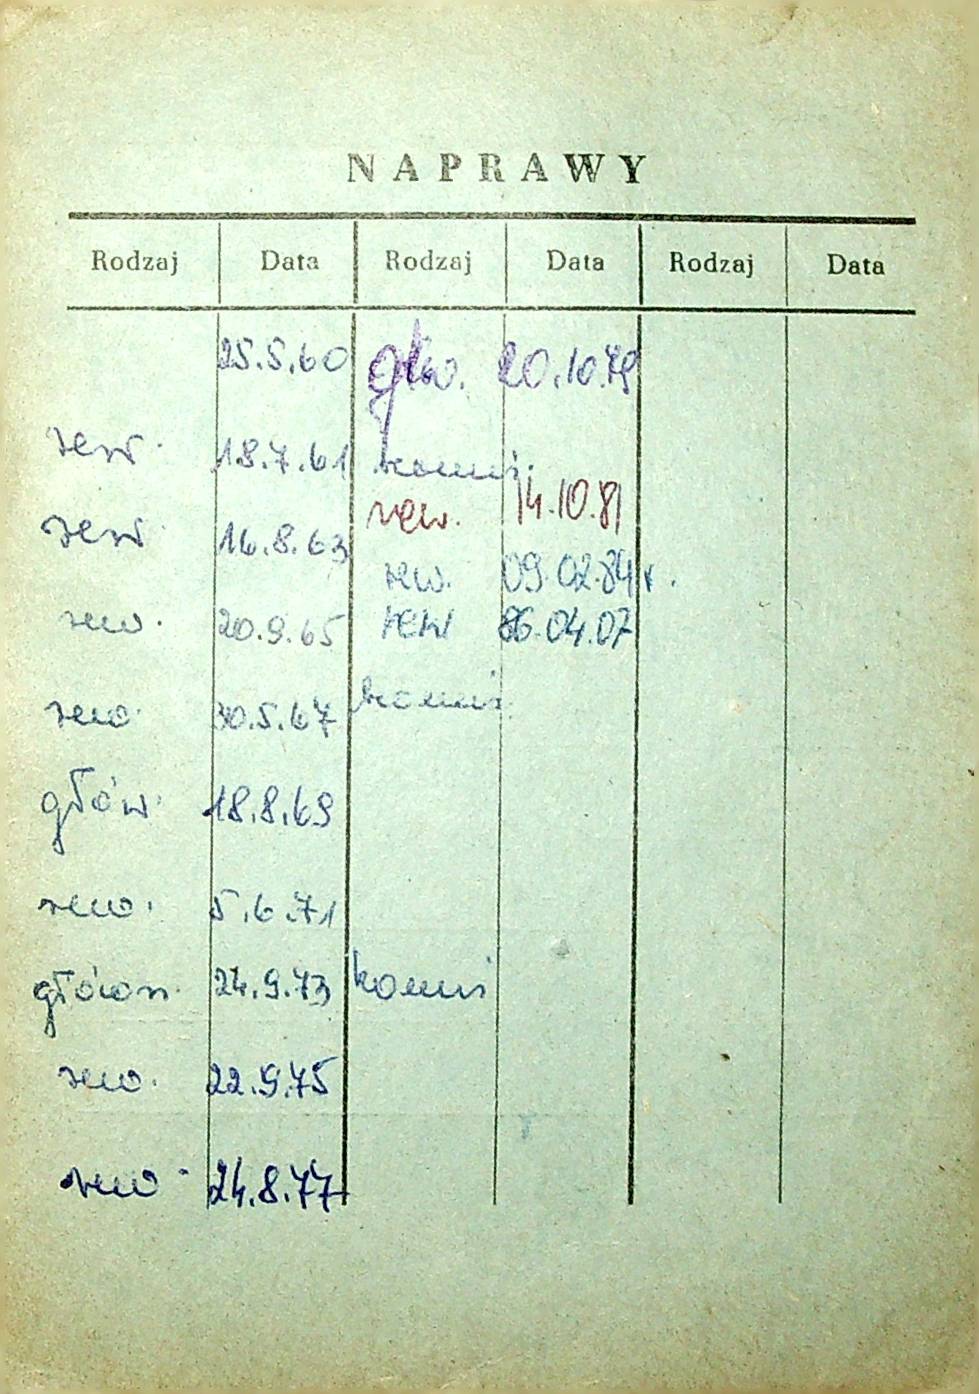 NAPRAWY
Rodzaj Data Rodzaj Data Rodzaj Data
25.5.60 głów. 20.10.79
rew. 18.7.61 komis.
rew. 14.10.81
rew 16.8.63
rew. 09.02.84 r.
rew. 20.9.65 rew 86.04.07
rew. 30.5.67 komis.
głów. 18.8.69
rew. 5.6.71
główn. 24.9.73 komis
rew. 22.9.75
rew. 24.8.77